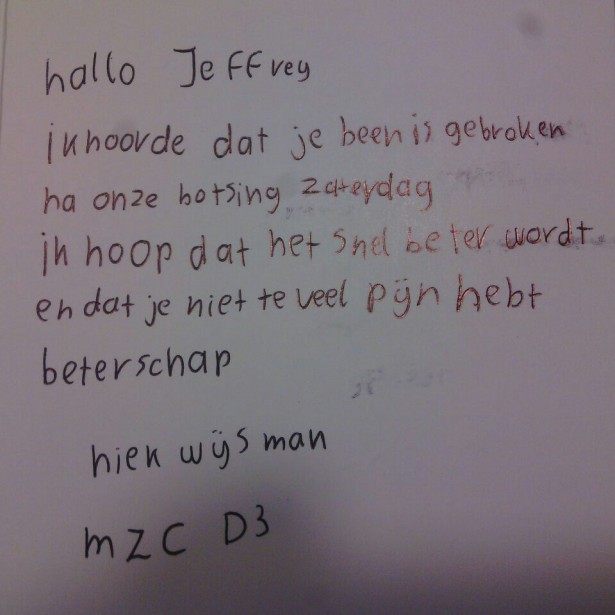 hallo Jeffrey
ik hoorde dat je been is gebroken
na onze botsing zaterdag
ik hoop dat het snel beter wordt
en dat je niet te veel pijn hebt
beterschap
niek wijsman
mzc D3